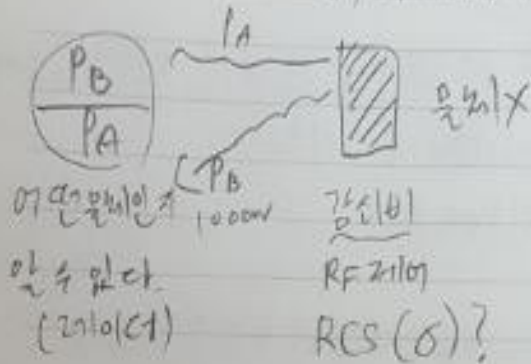 PA
PB
PA
물체X
PB
1000W
어떤물체인지
알 수 있다
(레이더)
감시비
RF 제어
RCS (σ)?